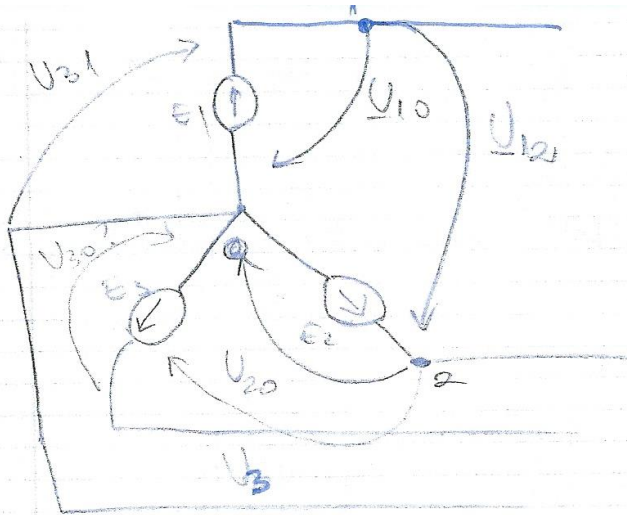 1
U31
E1
U10
U12
U30
E3
E2
U20
2
U3